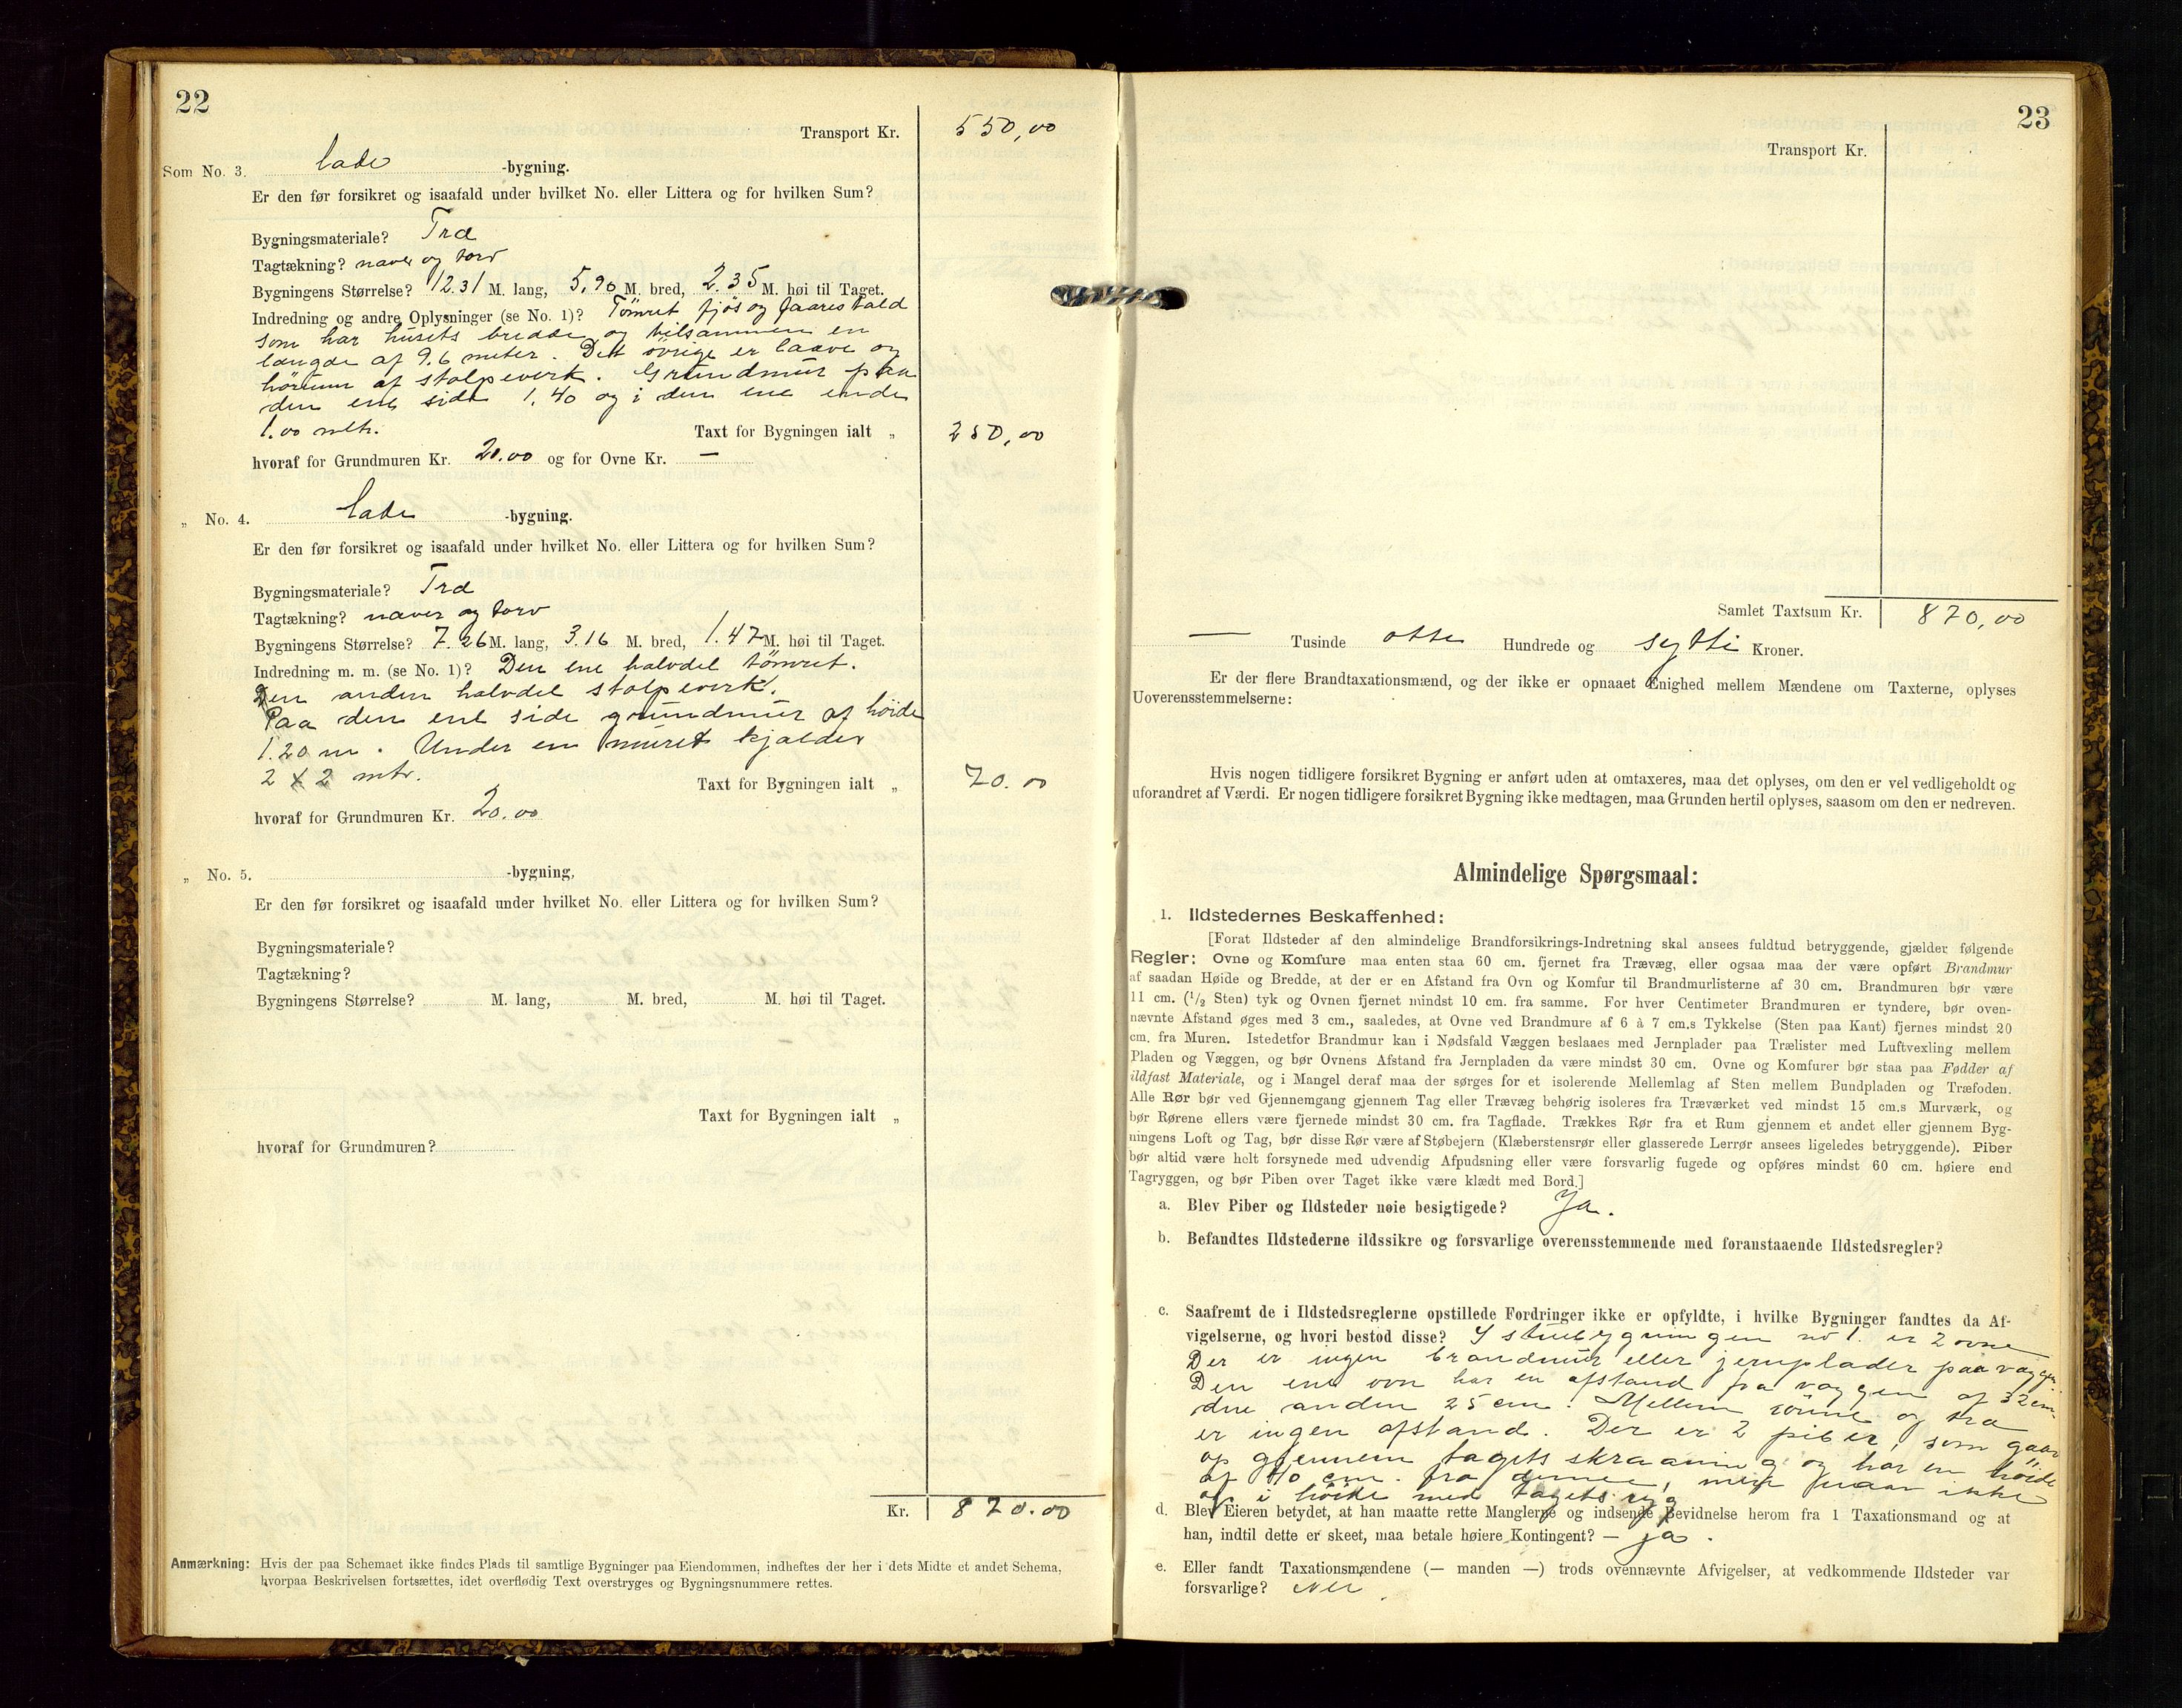 22
Transport Kr. 550,00
Som No. 3. Lade -bygning.
Er den før forsikret og isaafald under hvilket No. eller Littera og for hvilken Sum?
Bygningsmateriale? Træ
Tagtækning? never og torv
Bygningens Størrelse? 12.31 M. lang, 5,90 M. bred, 2.35 M. høi til Taget.
Indredning og andre Oplysninger (se No. 1)? Tömret fjös og faarestald
som har husets bredde og tilsammen en
længde af 9.6 meter. Det övrige er laave og
hörum af stolpeverk. Grundmur paa
den ene side 1,40 og i den ene ende
1.00 mtr.
Taxt for Bygningen ialt „ 250,00
hvoraf for Grundmuren Kr. 20.00 og for Ovne Kr. —
„ No. 4. Lade -bygning.
Er den før forsikret og isaafald under hvilket No. eller Littera og for hvilken Sum?
Bygningsmateriale? Træ
Tagtækning? never og torv
Bygningens Størrelse? 7.26 M. lang, 3.16 M. bred, 1.47 M. høi til Taget.
Indredning m. m. (se No. 1)? Den ene halvdel tömret.
Den anden halvdel stolpeverk.
Paa den ene side grundmur af höide
1.20 m. Under en muret kjælder
2 x 2 mtr.
Taxt for Bygningen ialt „ 70.00
hvoraf for Grundmuren Kr. 20.00
„ No. 5. -bygning,
Er den før forsikret og isaafald under hvilket No. eller Littera og for hvilken Sum?
Bygningsmateriale?
Tagtækning?
Bygningens Størrelse? M. lang, M. bred, M. høi til Taget.
Taxt for Bygningen ialt „
hvoraf for Grundmuren?
Kr. 870.00
Anmærkning: Hvis der paa Schemaet ikke findes Plads til samtlige Bygninger paa Eiendommen, indheftes der her i dets Midte et andet Schema,
hvorpaa Beskrivelsen fortsættes, idet overflødig Text overstryges og Bygningsnummere rettes.
23
Transport Kr.
Samlet Taxtsum Kr. 870,00
— Tusinde otte Hundrede og sytti Kroner.
Er der flere Brandtaxationsmænd, og der ikke er opnaaet Enighed mellem Mændene om Taxterne, oplyses
Uoverensstemmelserne:
Hvis nogen tidligere forsikret Bygning er anført uden at omtaxeres, maa det oplyses, om den er vel vedligeholdt og
uforandret af Værdi. Er nogen tidligere forsikret Bygning ikke medtagen, maa Grunden hertil oplyses, saasom om den er nedreven.
Almindelige Spørgsmaal:
1. Ildstedernes Beskaffenhed:
[Forat Ildsteder af den almindelige Brandforsikrings-Indretning skal ansees fuldtud betryggende, gjælder følgende
Regler: Ovne og Komfure maa enten staa 60 cm. fjernet fra Trævæg, eller ogsaa maa der være opført Brandmur
af saadan Høide og Bredde, at der er en Afstand fra Ovn og Komfur til Brandmurlisterne af 30 cm. Brandmuren bør være
11 cm. (1/2 Sten) tyk og Ovnen fjernet mindst 10 cm. fra samme. For hver Centimeter Brandmuren er tyndere, bør oven-
nævnte Afstand øges med 3 cm., saaledes, at Ovne ved Brandmure af 6 à 7 cm.s Tykkelse (Sten paa Kant) fjernes mindst 20
cm. fra Muren. Istedetfor Brandmur kan i Nødsfald Væggen beslaaes med Jernplader paa Trælister med Luftvexling mellem
Pladen og Væggen, og bør Ovnens Afstand fra Jernpladen da være mindst 30 cm. Ovne og Komfurer bør staa paa Fødder af
ildfast Materiale, og i Mangel deraf maa der sørges for et isolerende Mellemlag af Sten mellem Bundpladen og Træfoden.
Alle Rør bør ved Gjennemgang gjennem Tag eller Trævæg behørig isoleres fra Træværket ved mindst 15 cm.s Murværk, og
bør Rørene ellers være fjernede mindst 30 cm. fra Tagflade. Trækkes Rør fra et Rum gjennem et andet eller gjennem Byg-
ningens Loft og Tag, bør disse Rør være af Støbejern (Klæberstensrør eller glasserede Lerrør ansees ligeledes betryggende). Piber
bør altid være helt forsynede med udvendig Afpudsning eller være forsvarlig fugede og opføres mindst 60 cm. høiere end
Tagryggen, og bør Piben over Taget ikke være klædt med Bord.]
a. Blev Piber og Ildsteder nøie besigtigede? Ja.
b. Befandtes Ildstederne ildssikre og forsvarlige overensstemmende med foranstaaende Ildstedsregler?
c. Saafremt de i Ildstedsreglerne opstillede Fordringer ikke er opfyldte, i hvilke Bygninger fandtes da Af-
vigelserne, og hvori bestod disse? I stuebygningen no 1. er 2 ovne
Der er ingen brandmur eller jernplader paa væggen.
Den ene ovn har en afstand fra væggen af 32 cm.
den anden 25 cm. Mellem rörene og træ
er ingen afstand. Der er 2 piber, som gaar
op gjennem tagets skraaning og har en höide
af 40 cm. fra denne, men naar ikke
op i höide med tagets ryg
d. Blev Eieren betydet, at han maatte rette Manglerne og indsende Bevidnelse herom fra 1 Taxationsmand og at
han, indtil dette er skeet, maa betale høiere Kontingent? — ja.
e. Eller fandt Taxationsmændene (— manden —) trods ovennævnte Afvigelser, at vedkommende Ildsteder var
forsvarlige? Nei.